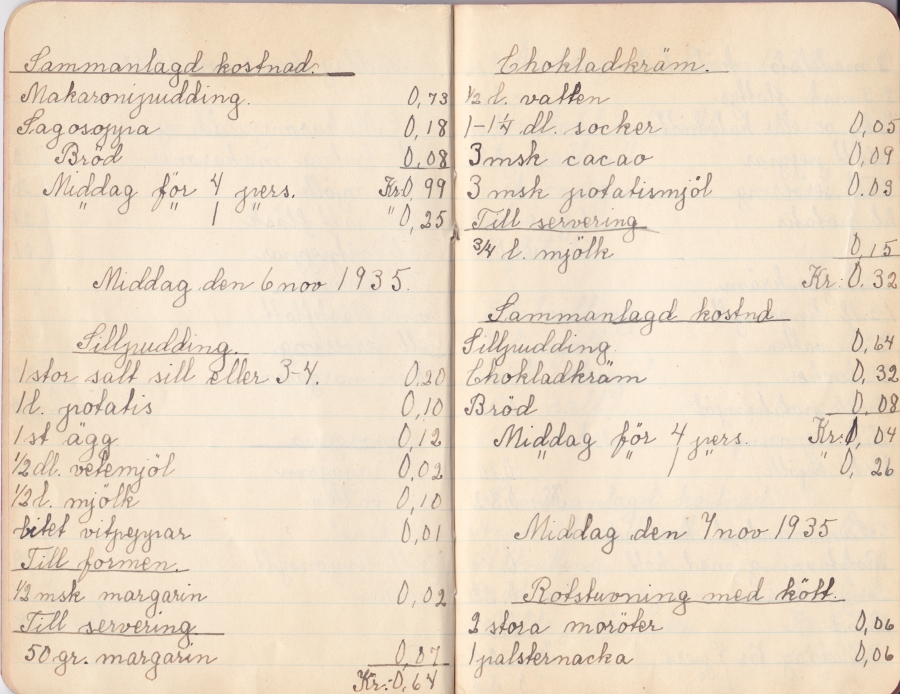 Sammanlagd kostnad.
Makaronipudding. 0,73
Sagosoppa 0,18
Bröd 0,08
Middag för 4 pers. Kr.0,99
" " 1 " 0,25
Middag den 6 nov 1935.
Sillpudding.
1 stor salt sill eller 3-4. 0,20
1 l. potatis 0,10
1 st ägg 0,12
1/2 dl. vetemjöl 0,02
1/2 l. mjölk 0,10
litet vitpeppar 0,01
Till formen.
1/2 msk margarin 0,02
Till servering.
50 gr. margarin 0,07
Kr:-0,64
Chokladkräm.
1/2 l. vatten
1-1 1/4 dl. socker 0,05
3 msk cacao 0,09
3 msk potatismjöl 0.03
Till servering
3/4 l. mjölk 0,15
Kr: 0.32
Sammanlagd kostnd
Sillpudding 0,64
Chokladkräm 0,32
Bröd 0,08
Middag för 4 pers. Kr:1,04
" " 1 " " 0,26
Middag den 7 nov 1935
Rotstuvning med kött.
2 stora moröter 0,06
1 palsternacka 0,06